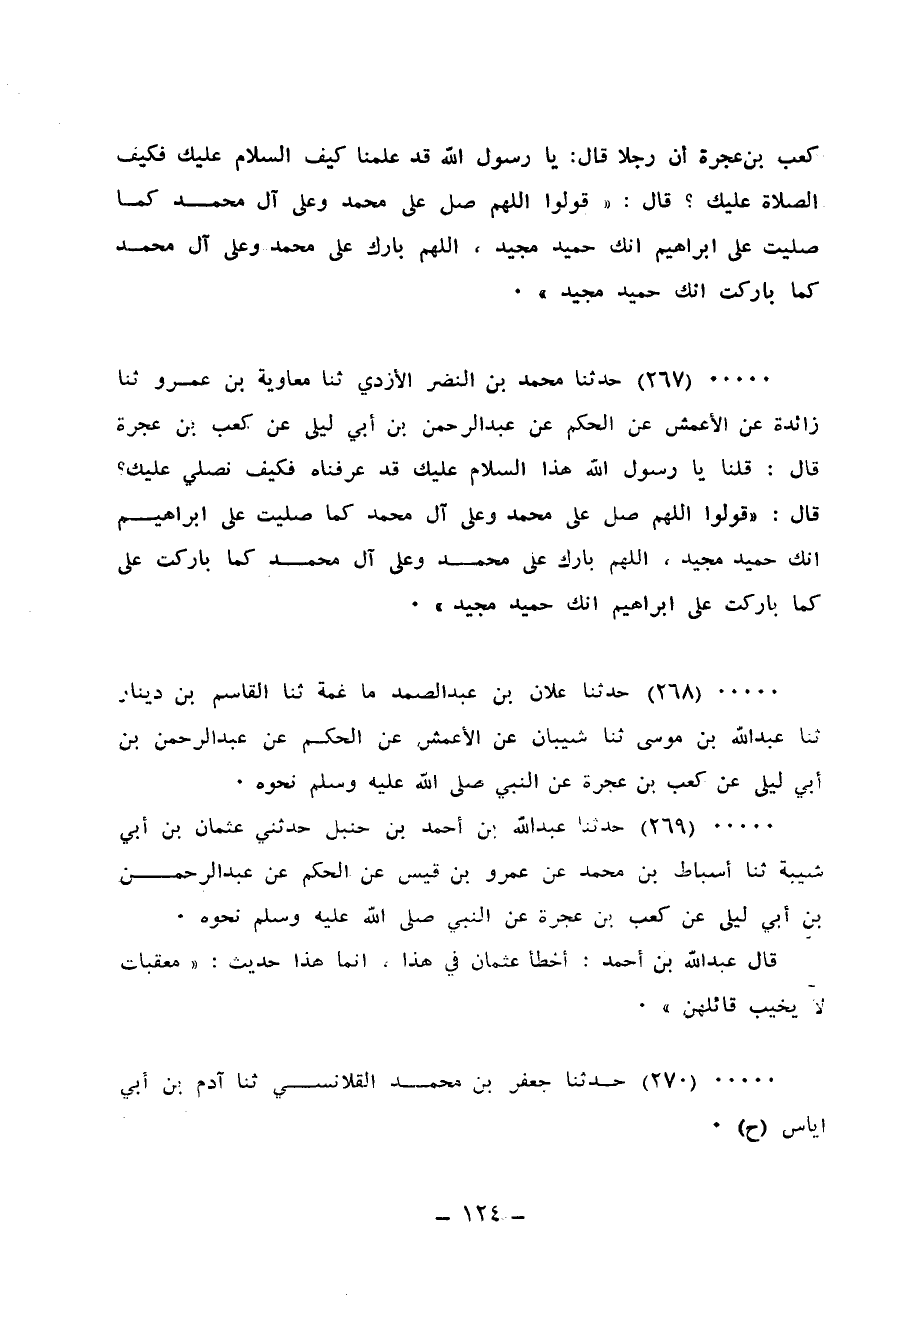 كعب بن عجرة أن رجلا قال: يا رسول الله قد علمنا كيف السلام عليك فكيف
الصلاة عليك ؟ قال : « قولوا اللهم صل على محمد وعلى آل محمـــد كمـا
صليت على ابراهيم انك حميد مجيد ، اللهم بارك على محمد وعلى آل محمـد
كما باركت انك حميد مجيد » ٠
٠٠٠٠٠ (٢٦٧) حدثنا محمد بن النضر الأزدي ثنا معاوية بن عمـرو ثنا
زائدة عن الأعمش عن الحكم عن عبدالرحمن بن أبي ليلى عن كعب بن عجرة
قال : قلنا يا رسول الله هذا السلام عليك قد عرفناه فكيف نصلي عليك؟
قال : «قولوا اللهم صل على محمد وعلى آل محمد كما صليت على ابراهيـــم
انك حميد مجيد ، اللهم بارك على محمـــد وعلى آل محمـــد كما باركت على
كما باركت على ابراهيم انك حميد مجيد » ٠
٠٠٠٠٠ (٢٦٨) حدثنا علان بن عبدالصمد ما غمة ثنا القاسم بن دينار
ثنا عبدالله بن موسى ثنا شيبان عن الأعمش عن الحكـم عن عبدالرحمن بن
أبي ليلى عن كعب بن عجرة عن النبي صلى الله عليه وسلم نحوه ٠
٠٠٠٠٠ (٢٦٩) حدثنا عبدالله بن أحمد بن حنبل حدثني عثمان بن أبي
شيبة ثنا أسباط بن محمد عن عمرو بن قيس عن الحكم عن عبدالرحمـــن
بن أبي ليلى عن كعب بن عجرة عن النبي صلى الله عليه وسلم نحوه ٠
قال عبدالله بن أحمد : أخطأ عثمان في هذا ، انما هذا حديث : « معقبات
لا يخيب قائلهن » ٠
٠٠٠٠٠ (٢٧٠) حـدثنا جعفر بن محمـــد القلانســـي ثنا آدم بن أبي
اياس (ح) ٠
ـ ١٢٤ ـ